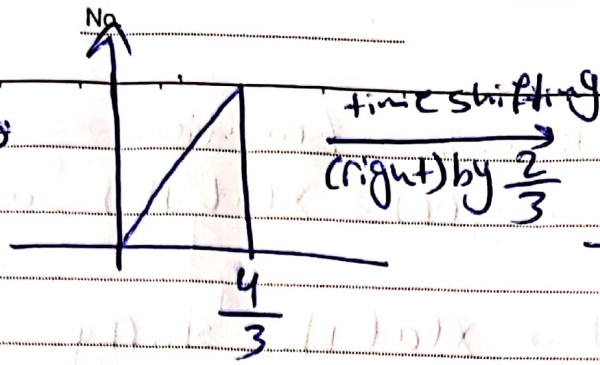 No.
time shifting
(right) by 2/3
4/3